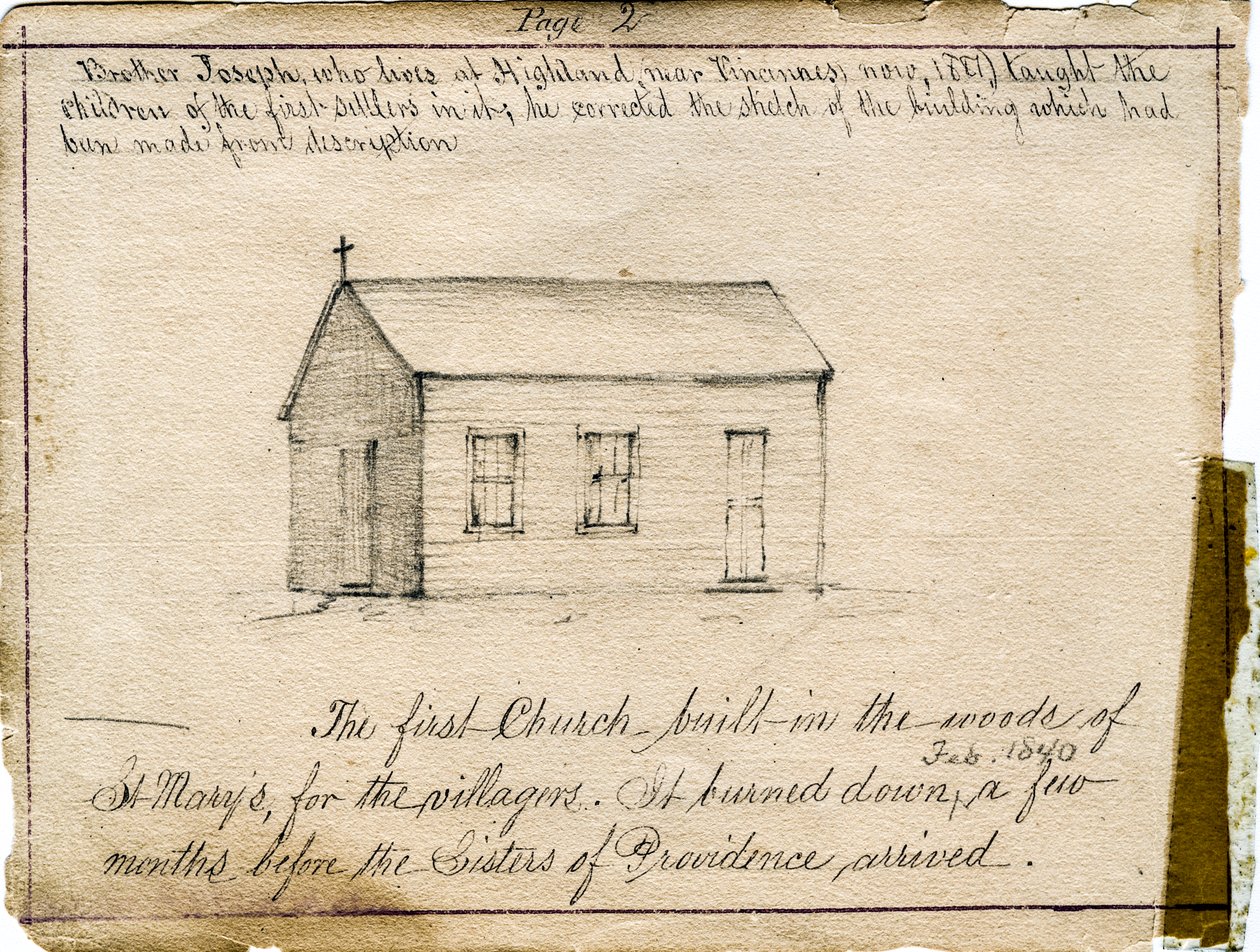 Page 2
Brother Joseph, who lives at Highland, near Vincennes, now, taught the
children of the first settlers in it; he corrected the sketch of the building which had
been made from description
The first Church built in the woods of
Feb. 1840
St Mary's, for the villagers. It burned down, a few
months before the Sisters of Providence arrived.